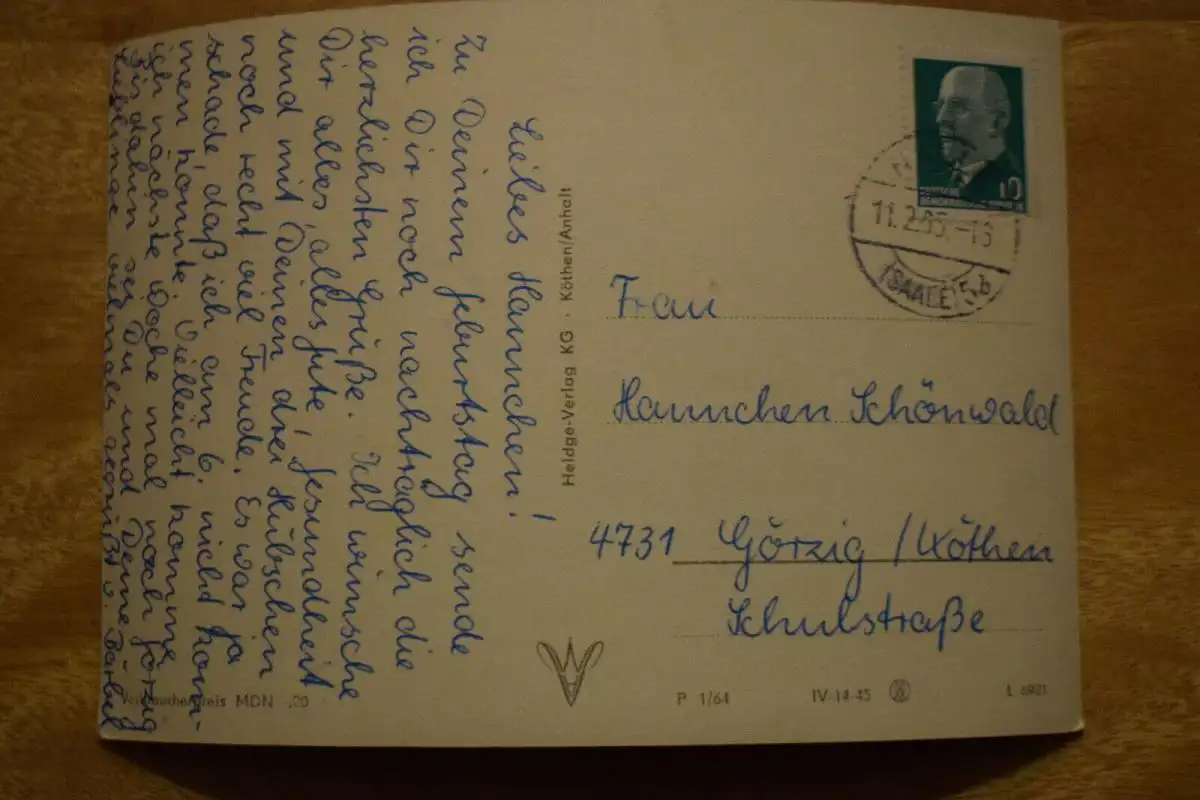 Liebes Hannchen!
Zu Deinem Geburtstag sende
ich Dir noch nachträglich die
herzlichsten Grüße. Ich wünsche
Dir alles, alles Gute, Gesundheit
und mit Deinen drei Hübschen
noch recht viel Freude. Es war ja
schade, daß ich am 6. nicht kom-
men konnte. Vielleicht komme
ich nächste Woche mal nach Görzig
Bis dahin sei Du und Deine
Lieblinge vielmals gegrüßt v. Bärbel
Heldge-Verlag KG · Köthen/Anhalt
DEUTSCHE
DEMOKRATISCHE
10
11.2.65.-13
(SAALE) 5
b
Frau
Hannchen Schönwald
4731 Görzig /Köthen
Schulstraße
Verbraucherpreis MDN .20
P 1/64
IV-14-45
L 6921